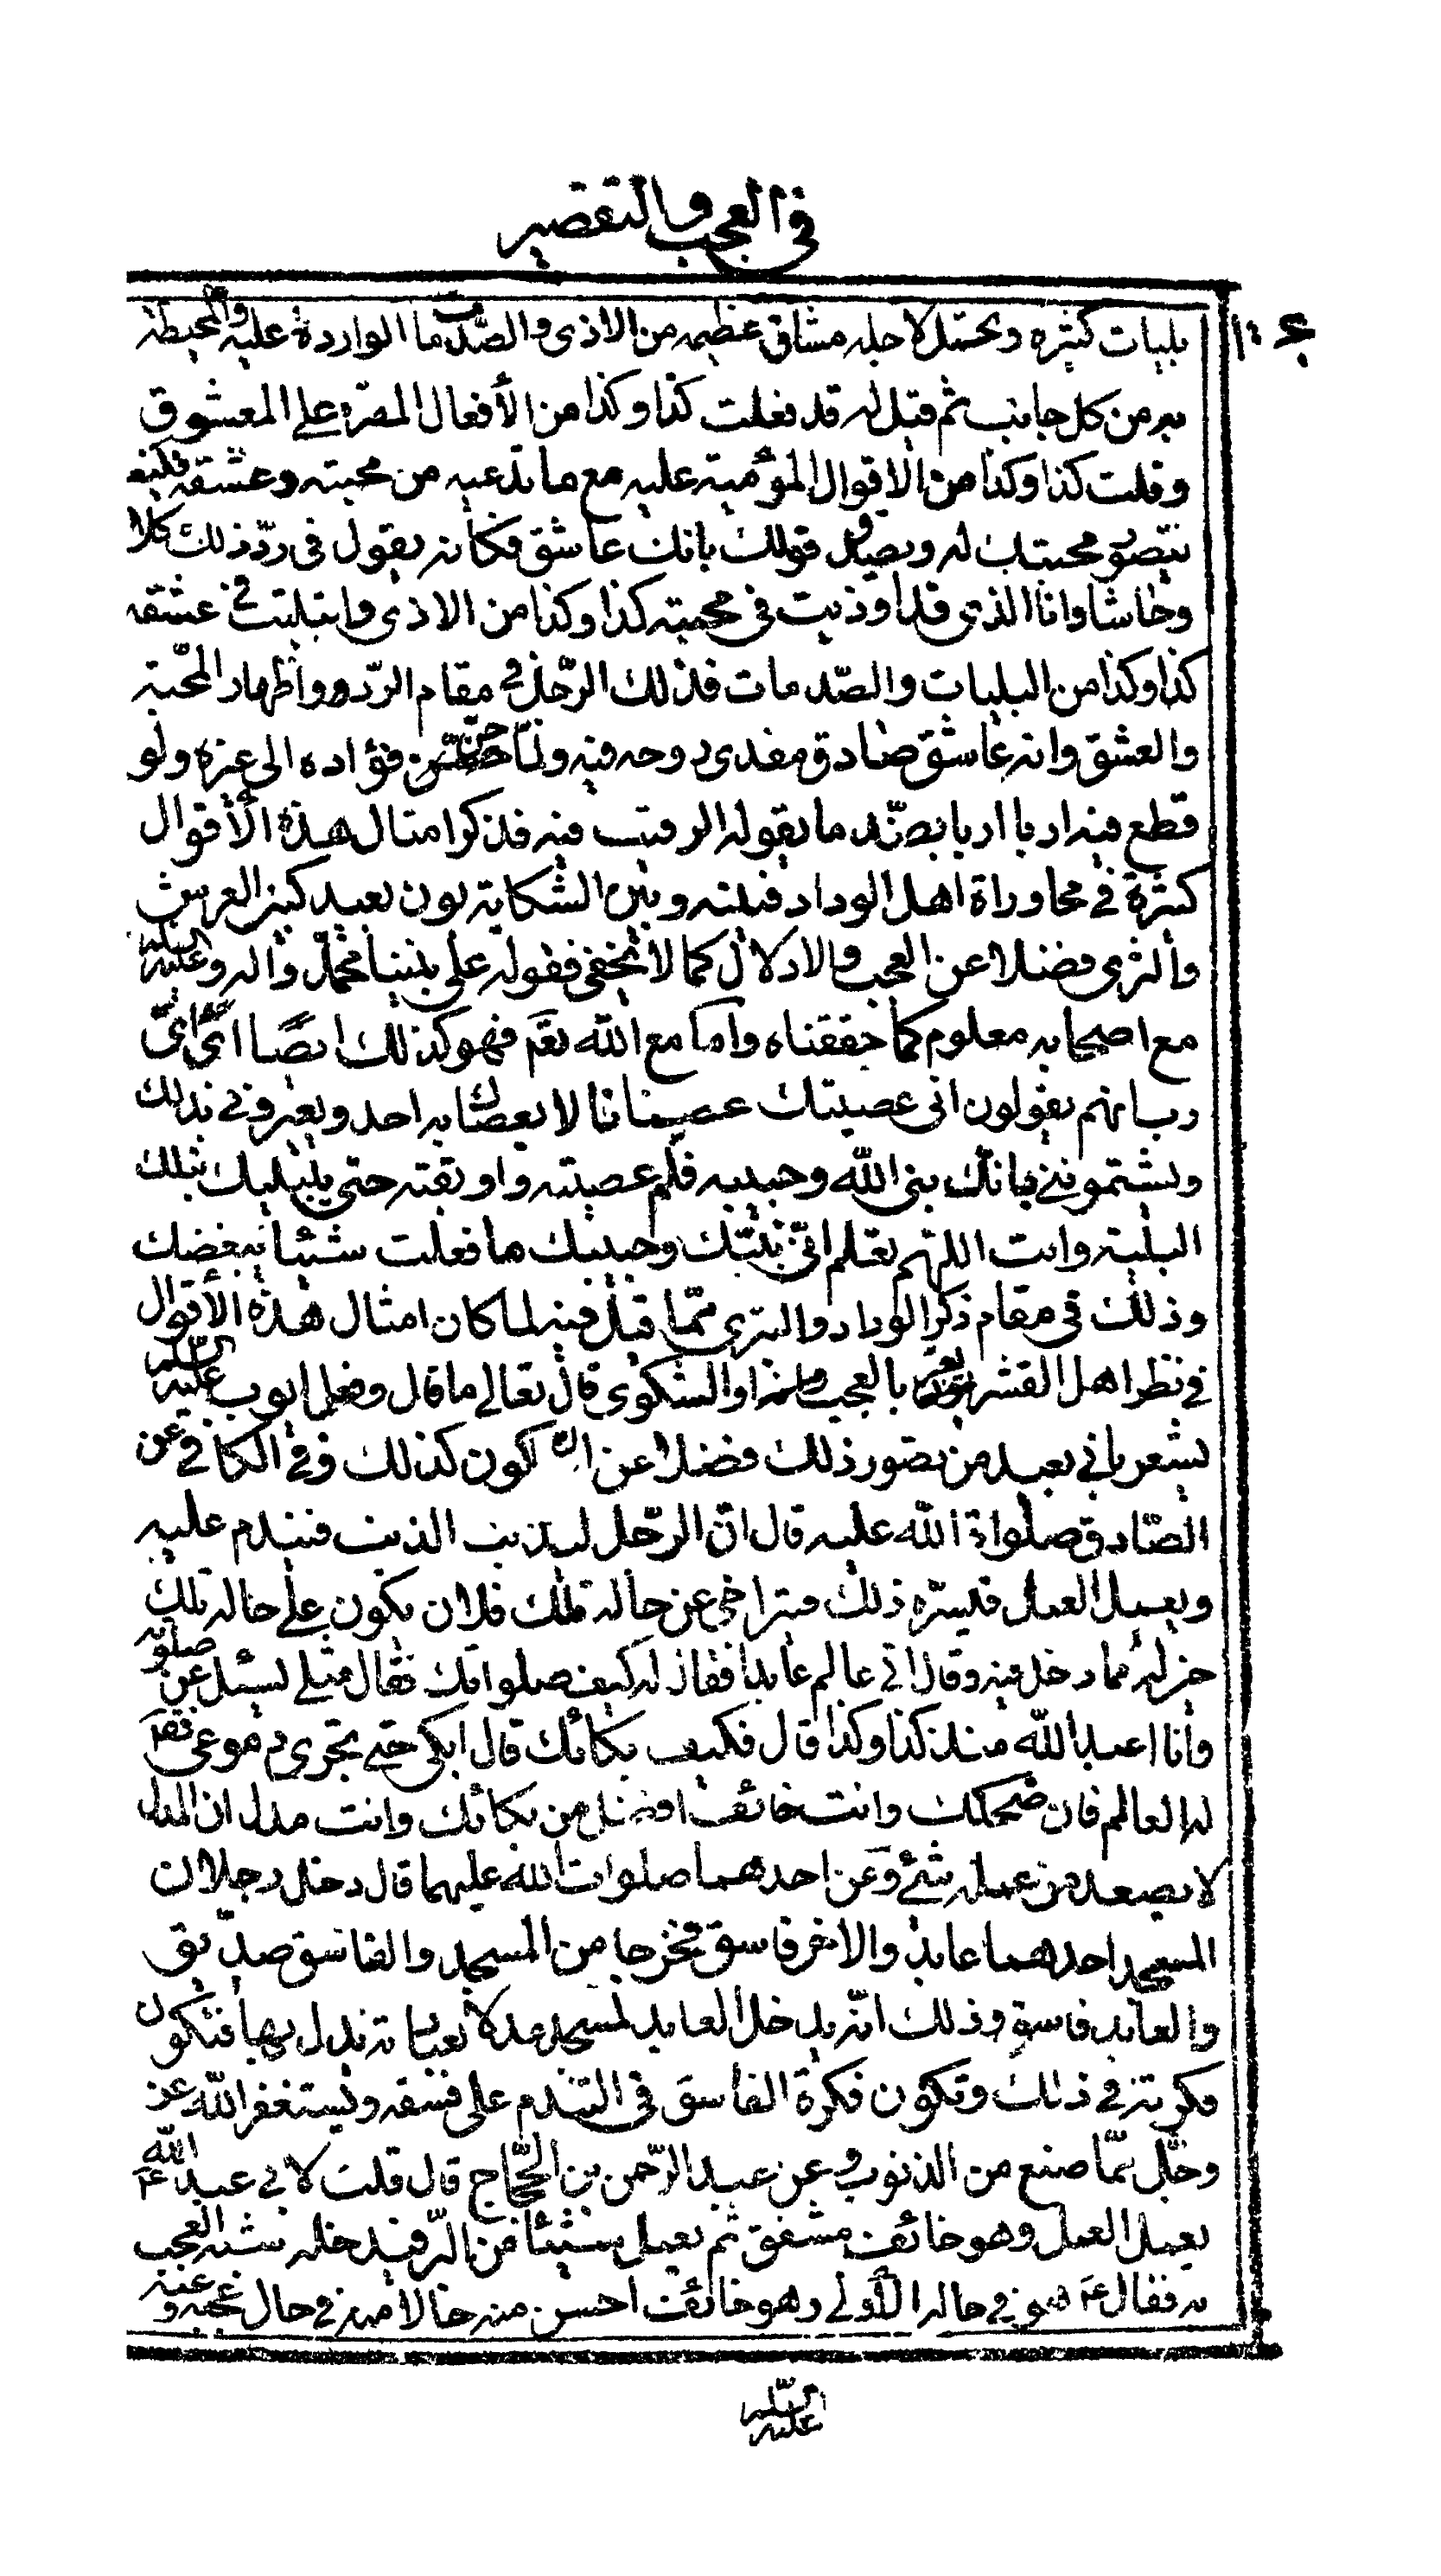 في العجب والتقصير
بليات كثيره ويحتمل لاجله مشاق عظيمه من الاذى والصدمات الواردة عليه والمحيطة
به من كل جانب ثم قيل له قد فعلت كذا وكذا من الأفعال المضره على المعشوق
وقلت كذا وكذا من الاقوال المؤمية عليه مع ما تدعيه من محبته وعشقه فكيف
يتصور محبتك له ويصدق قولك بانك عاشق فكانه يقول في ردّ ذلك كلا
وحاشا وانا الذي قد اوذيت في محبته كذا وكذا من الاذى وابتليت في عشقه
كذا وكذا من البليات والصّدمات فذلك الرّجل في مقام الردّ واظهار المحبّة
والعشق وانه عاشق صادق مفدى روحه فيه ولمّا حنّ فؤاده الى غيره ولو
قطع فيه اربا اربا بصدد ما يقوله الرقيب فيه فذكر امثال هذه الأقوال
كثرة في محاوراة اهل الوداد فبينه وبين الشكاية بون بعيد كبين العرش
والثرى فضلا عن العجب والادلال كما لا يخفى فقوله على نبينا محمّد واله وعليه السلام
مع اصحابه معلوم كما حققناه واما مع الله تعم فهو كذلك ايضًا اى اى
رب انهم يقولون انى عصيتك عصيانا لا يعصيك به احد ويعيروني بذلك
ويشتمونني بانك نبي الله وحبيبه فلم عصيته واوبقته حتى يبتليك بتلك
البلية وانت اللهم تعلم انّي نبيّك وحبيبك ما فعلت شيئا يبغضك
وذلك في مقام ذكر الوداد والتبري ممّا قيل فيه لما كان امثال هذه الأقوال
في نظر اهل القشر بالعجب او الشكوى قال تعالى ما قال وفعل ايوب عليه السلام
يشعر باني بعيد من تصور ذلك فضلا عن ان اكون كذلك وفي الكافي عن
الصّادق صلواة الله عليه قال انّ الرّجل ليذنب الذنب فيندم عليه
ويعمل العمل فيسرّه ذلك فيتراخى عن حاله تلك فلان يكون على حاله تلك
خير له مما دخل فيه وقال اتى عالم عابدا فقال له كيف صلواتك فقال مثلي يسئل عن صلوته
وانا اعبد الله منذ كذا وكذا قال فكيف بكائك قال ابكي حتى تجري دموعي فقال
له العالم فان ضحكك وانت خائف افضل من بكائك وانت مدل ان المدل
لا يصعد من عمله شيء وعن احدهما صلوات الله عليهما قال دخل رجلان
المسجد احدهما عابد والاخر فاسق فخرجا من المسجد والفاسق صدّيق
والعابد فاسق وذلك انّه يدخل العابد المسجد مدلا بعبادته يدل بها فتكون
فكرته في ذلك وتكون فكرة الفاسق في التندم على فسقه ويستغفر الله عز
وجلّ ممّا صنع من الذنوب وعن عبد الرّحمن بن الحجّاج قال قلت لابي عبد الله عم
يعمل العمل وهو خائف مشفق ثم يعمل شيئا من البرّ فيدخله شبه العجب
به فقال عم هو في حاله الأولى وهو خائف احسن منه حالا منه في حال عجبه وعنه
عليه السلام